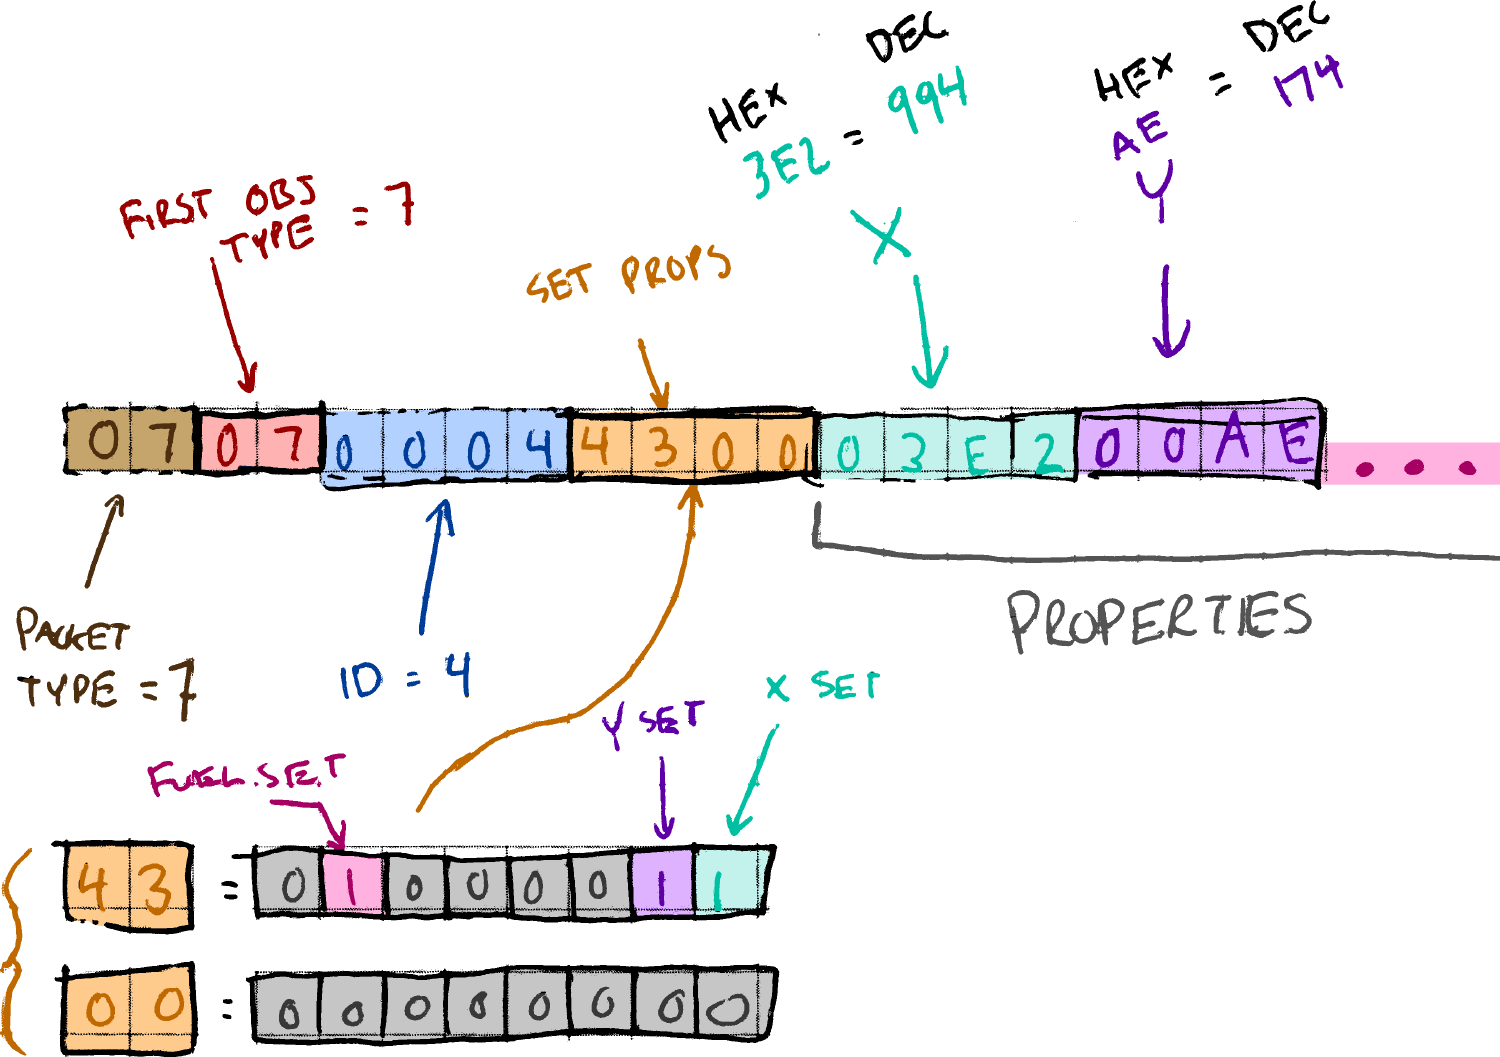 HEX DEC
3E2 = 994
X
HEX DEC
AE = 174
Y
FIRST OBJ
TYPE = 7
SET PROPS
0 7 0 7 0 0 0 4 4 3 0 0 0 3 E 2 0 0 A E . . .
PACKET
TYPE = 7
ID = 4
PROPERTIES
FUEL.SET
Y SET
X SET
4 3 = 0 1 0 0 0 0 1 1
0 0 = 0 0 0 0 0 0 0 0